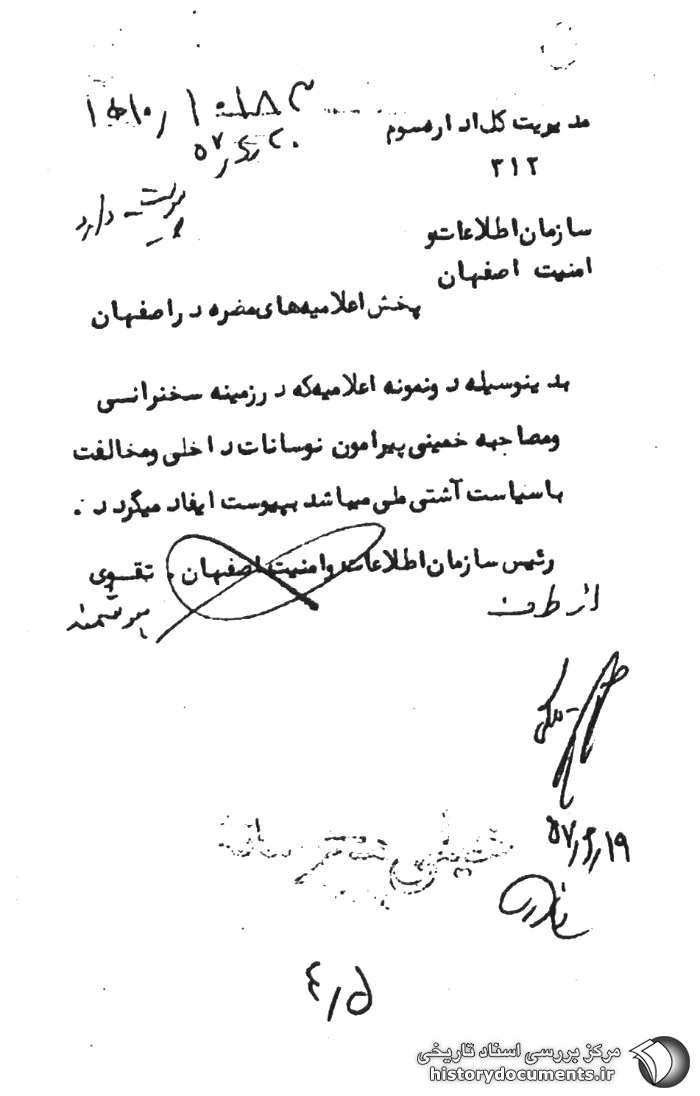 مدیریت کل اداره سوم
۳۱۲
دارد
سازمان اطلاعات و
امنیت اصفهان
پخش اعلامیه‌های مضره در اصفهان
بدینوسیله دو نمونه اعلامیه که در زمینه سخنرانی
ومصاحبه خمینی پیرامون نوسانات داخلی ومخالفت
با سیاست آشتی ملی میباشد بپیوست ایفاد میگردد.
رئیس سازمان اطلاعات وامنیت اصفهان. تقوی
از طرف
خیلی محرمانه
مرکز بررسی اسناد تاریخی
historydocuments.ir